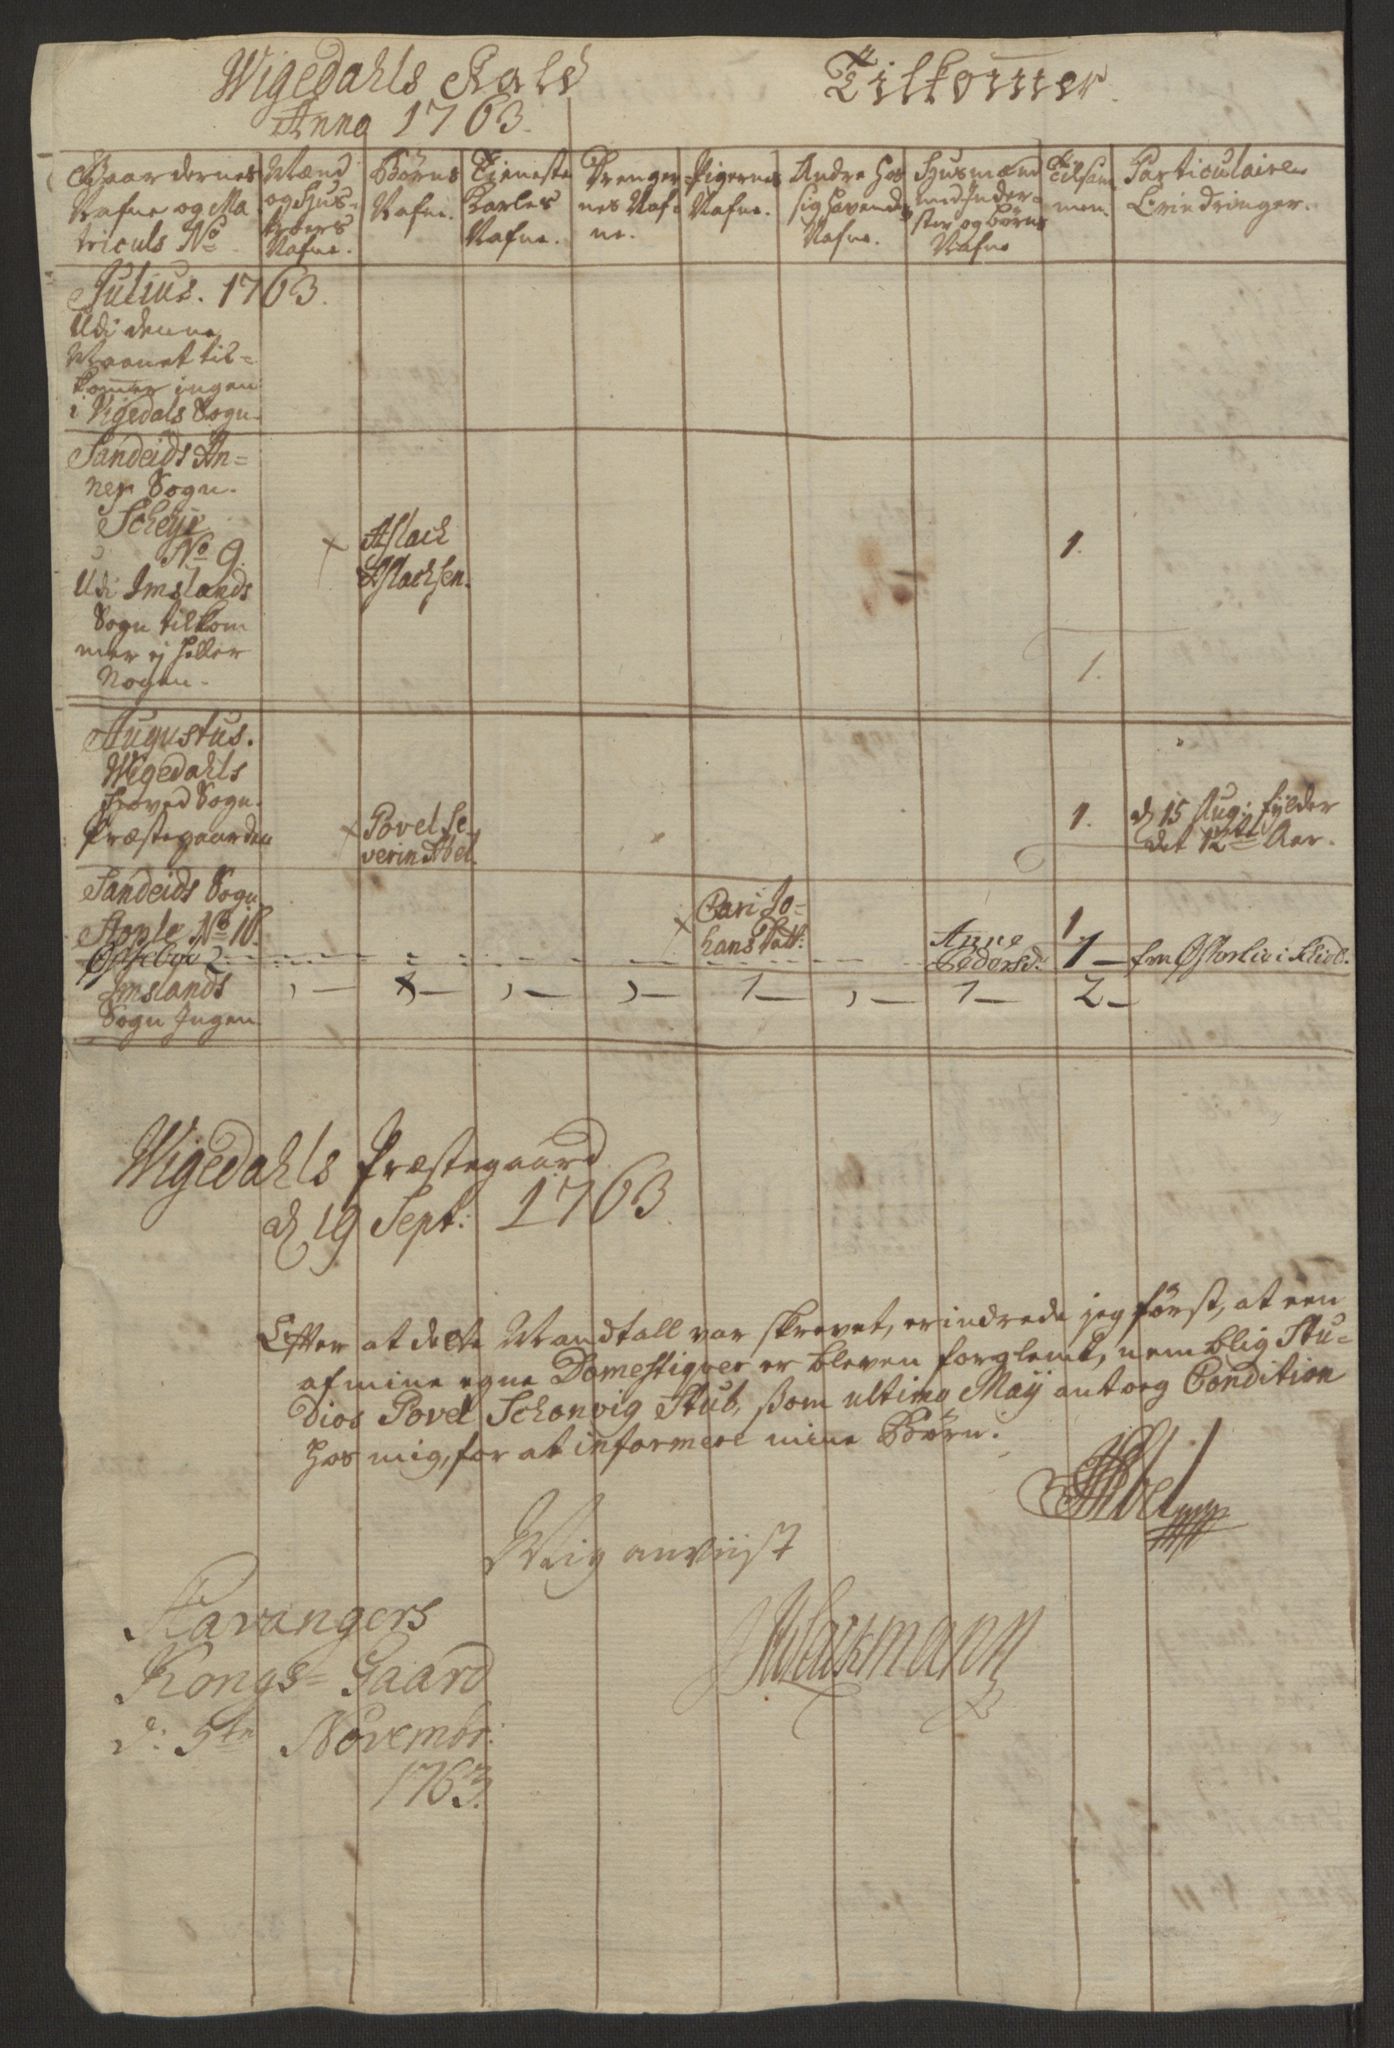 Wigedahls Kald
Anno 1763.
Tilkommer
Gaardernes Nafne og Matriculs No
Mænd og Hustroers Nafne.
Børns Nafne.
Tieneste Karles Nafne.
Drengernes Nafne.
Pigernes Nafne.
Andre hos sig havende Nafne.
Huusmænd med Inderster og børns Nafne
Tilsammen.
Particulaire Erindringer.
Julius. 1763.
Udi denne
Maanet til=
kommer ingen
i Vigedals Sogn.
Sandeids An=
nex Sogn.
No 9.
× Aslach
Aslachsen.
1.
Udi Imslands
Sogn tilkom
mer ej heller
Nogen.
1.
Augustus.
Wigedahls
Hoved Sogn.
Præstegaarden
× Povel Se
verin Abel.
1.
d 15 Aug: fylder
det 12te Aar.
Sandeids Sogn
No 10.
× Cari Jo=
hans Datt:
1.
Anne
Pedersd:
1 —
fra Østerlie i
Imslands
Sogn Ingen
1 — 1 — 2 —
Wigedahls Præstegaard
d 19 Sept: 1763.
Efter at dette Mandtall var skrevet, erindrede jeg først, at een
af mine egne Domestiquer er bleven forglemt, nemblig Stu=
dios Povel Schanvig Stub, som ultimo Maij antog Condition
hos mig, for at informere mine Børn.
Abel
Mig anviist
Stavangers
Kongs=Gaard
d: 5te Novembr:
1763.